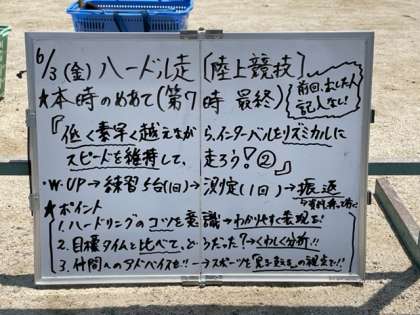 6/3(金)ハードル走〔陸上競技〕
前回、出した人
記入なし!
★本時のめあて(第7時 最終)
『低く素早く越えながら、インターバルをリズミカルに
スピードを維持して、走ろう!②』
・W-UP→練習5台(1回)→測定(1回)→振返
★ポイント
1.ハードリングのコツを意識→わかりやすく表現を!
2.目標タイムと比べて、どうだった?→くわしく分析!!
3.仲間へのアドバイスを!!→スポーツを「見る・支える」の視点で!!